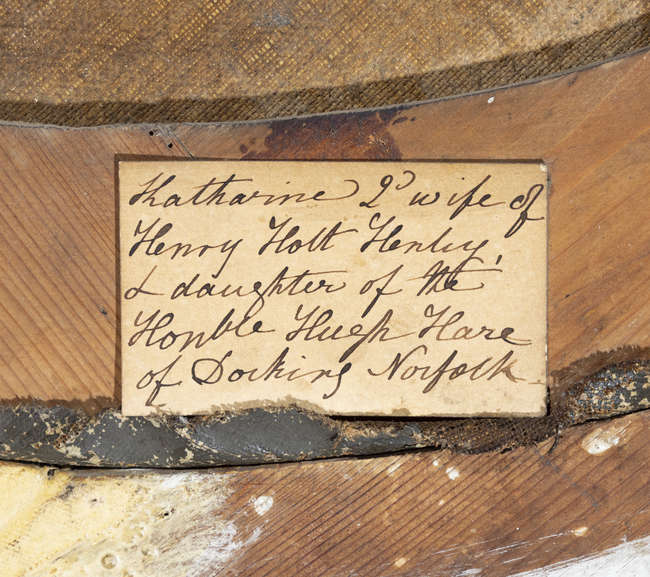 Katharine 2d wife of
Henry Holt Henley,
& daughter of the
Honble Hugh Hare
of Docking Norfolk.